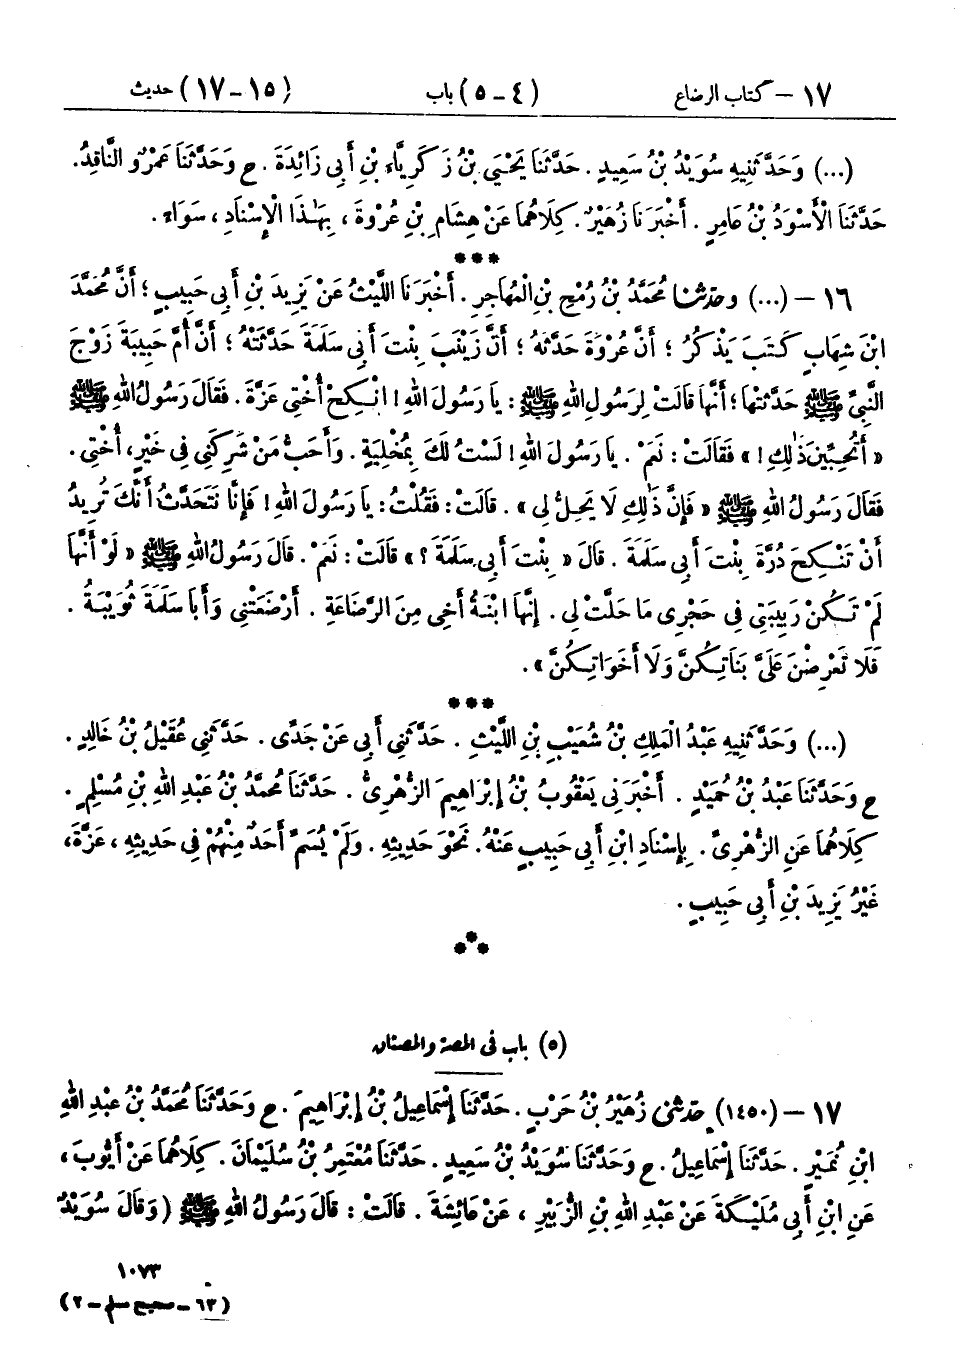 ١٧ – كتاب الرضاع (٤ – ٥) باب (١٥ – ١٧) حديث
(...) وَحَدَّثَنِيهِ سُوَيْدُ بْنُ سَعِيدٍ . حَدَّثَنَا يَحْيَىٰ بْنُ زَكَرِيَّاءَ بْنِ أَبِي زَائِدَةَ . ح وَحَدَّثَنَا عَمْرٌو النَّاقِدُ .
حَدَّثَنَا الْأَسْوَدُ بْنُ عَامِرٍ . أَخْبَرَنَا زُهَيْرٌ . كِلَاهُمَا عَنْ هِشَامِ بْنِ عُرْوَةَ ، بِهَـٰذَا الْإِسْنَادِ ، سَوَاءً .
***
١٦ – (...) وحدثنا مُحَمَّدُ بْنُ رُمْحِ بْنِ الْمُهَاجِرِ . أَخْبَرَنَا اللَّيْثُ عَنْ يَزِيدَ بْنِ أَبِي حَبِيبٍ ؛ أَنَّ مُحَمَّدَ
ابْنَ شِهَابٍ كَتَبَ يَذْكُرُ ؛ أَنَّ عُرْوَةَ حَدَّثَهُ ؛ أَنَّ زَيْنَبَ بِنْتَ أَبِي سَلَمَةَ حَدَّثَتْهُ ؛ أَنَّ أُمَّ حَبِيبَةَ زَوْجَ
النَّبِيِّ ﷺ حَدَّثَتْهَا ؛ أَنَّهَا قَالَتْ لِرَسُولِ اللهِ ﷺ : يَا رَسُولَ اللهِ ! انْكِحْ أُخْتِي عَزَّةَ . فَقَالَ رَسُولُ اللهِ ﷺ
« أَتُحِبِّينَ ذَٰلِكِ ! » فَقَالَتْ : نَعَمْ . يَا رَسُولَ اللهِ ! لَسْتُ لَكَ بِمُخْلِيَةٍ . وَأَحَبُّ مَنْ شَرِكَنِي فِي خَيْرٍ ، أُخْتِي .
فَقَالَ رَسُولُ اللهِ ﷺ « فَإِنَّ ذَٰلِكِ لَا يَحِلُّ لِي » . قَالَتْ : فَقُلْتُ : يَا رَسُولَ اللهِ ! فَإِنَّا نَتَحَدَّثُ أَنَّكَ تُرِيدُ
أَنْ تَنْكِحَ دُرَّةَ بِنْتَ أَبِي سَلَمَةَ . قَالَ « بِنْتَ أَبِي سَلَمَةَ ؟ » قَالَتْ : نَعَمْ . قَالَ رَسُولُ اللهِ ﷺ « لَوْ أَنَّهَا
لَمْ تَكُنْ رَبِيبَتِي فِي حَجْرِي مَا حَلَّتْ لِي . إِنَّهَا ابْنَةُ أَخِي مِنَ الرَّضَاعَةِ . أَرْضَعَتْنِي وَأَبَا سَلَمَةَ ثُوَيْبَةُ .
فَلَا تَعْرِضْنَ عَلَيَّ بَنَاتِكُنَّ وَلَا أَخَوَاتِكُنَّ » .
***
(...) وَحَدَّثَنِيهِ عَبْدُ الْمَلِكِ بْنُ شُعَيْبِ بْنِ اللَّيْثِ . حَدَّثَنِي أَبِي عَنْ جَدِّي . حَدَّثَنِي عُقَيْلُ بْنُ خَالِدٍ .
ح وَحَدَّثَنَا عَبْدُ بْنُ حُمَيْدٍ . أَخْبَرَنِي يَعْقُوبُ بْنُ إِبْرَاهِيمَ الزُّهْرِيُّ . حَدَّثَنَا مُحَمَّدُ بْنُ عَبْدِ اللهِ بْنِ مُسْلِمٍ .
كِلَاهُمَا عَنِ الزُّهْرِيِّ . بِإِسْنَادِ ابْنِ أَبِي حَبِيبٍ عَنْهُ . نَحْوَ حَدِيثِهِ . وَلَمْ يُسَمِّ أَحَدٌ مِنْهُمْ فِي حَدِيثِهِ ، عَزَّةَ ،
غَيْرُ يَزِيدَ بْنِ أَبِي حَبِيبٍ .
***
(٥) باب في المصة والمصتان
١٧ – (١٤٥٠) حدثني زُهَيْرُ بْنُ حَرْبٍ . حَدَّثَنَا إِسْمَاعِيلُ بْنُ إِبْرَاهِيمَ . ح وَحَدَّثَنَا مُحَمَّدُ بْنُ عَبْدِ اللهِ
ابْنِ نُمَيْرٍ . حَدَّثَنَا إِسْمَاعِيلُ . ح وَحَدَّثَنَا سُوَيْدُ بْنُ سَعِيدٍ . حَدَّثَنَا مُعْتَمِرُ بْنُ سُلَيْمَانَ . كِلَاهُمَا عَنْ أَيُّوبَ ،
عَنِ ابْنِ أَبِي مُلَيْكَةَ عَنْ عَبْدِ اللهِ بْنِ الزُّبَيْرِ ، عَنْ عَائِشَةَ . قَالَتْ : قَالَ رَسُولُ اللهِ ﷺ (وَقَالَ سُوَيْدٌ
١٠٧٣
(٦٣ – صحيح مسلم – ٢)